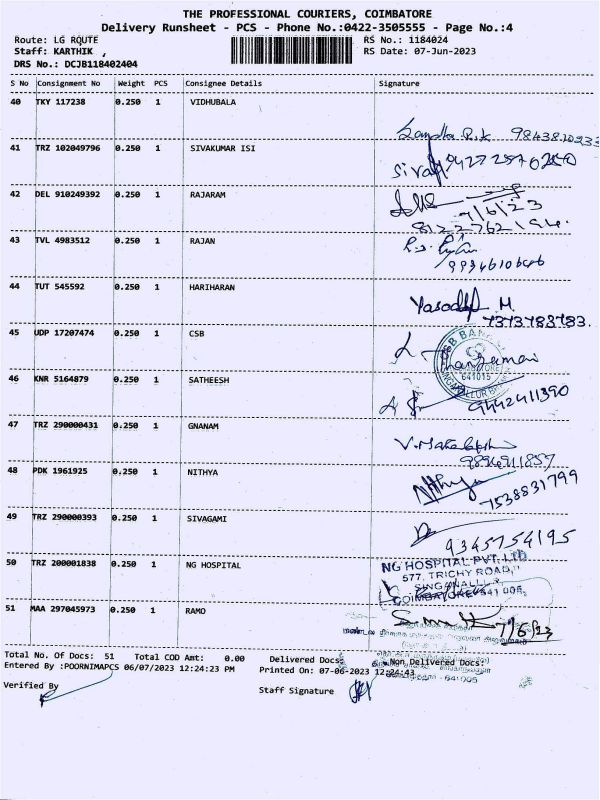 THE PROFESSIONAL COURIERS, COIMBATORE
Delivery Runsheet - PCS - Phone No.:0422-3505555 - Page No.:4
Route: LG ROUTE RS No.: 1184024
Staff: KARTHIK , RS Date: 07-Jun-2023
DRS No.: DCJB118402404
S No Consignment No Weight PCS Consignee Details Signature
40 TKY 117238 0.250 1 VIDHUBALA
41 TRZ 102049796 0.250 1 SIVAKUMAR ISI
42 DEL 910249392 0.250 1 RAJARAM
7/6/23
43 TVL 4983512 0.250 1 RAJAN
9934610646
44 TUT 545592 0.250 1 HARIHARAN
M.
7373783783.
45 UDP 17207474 0.250 1 CSB
CSB BANK
641015
46 KNR 5164879 0.250 1 SATHEESH
9442411390
47 TRZ 290000431 0.250 1 GNANAM
48 PDK 1961925 0.250 1 NITHYA
Nithya
7538831799
49 TRZ 290000393 0.250 1 SIVAGAMI
9345754195
50 TRZ 200001838 0.250 1 NG HOSPITAL
NG HOSPITAL PVT. LTD
577, TRICHY ROAD,
SINGANALLUR,
COIMBATORE-641 005.
51 MAA 297045973 0.250 1 RAMO
7/6/23
Total No. Of Docs: 51 Total COD Amt: 0.00 Delivered Docs: Non Delivered Docs:
Entered By :POORNIMAPCS 06/07/2023 12:24:23 PM Printed On: 07-06-2023 12:24:43
Verified By Staff Signature